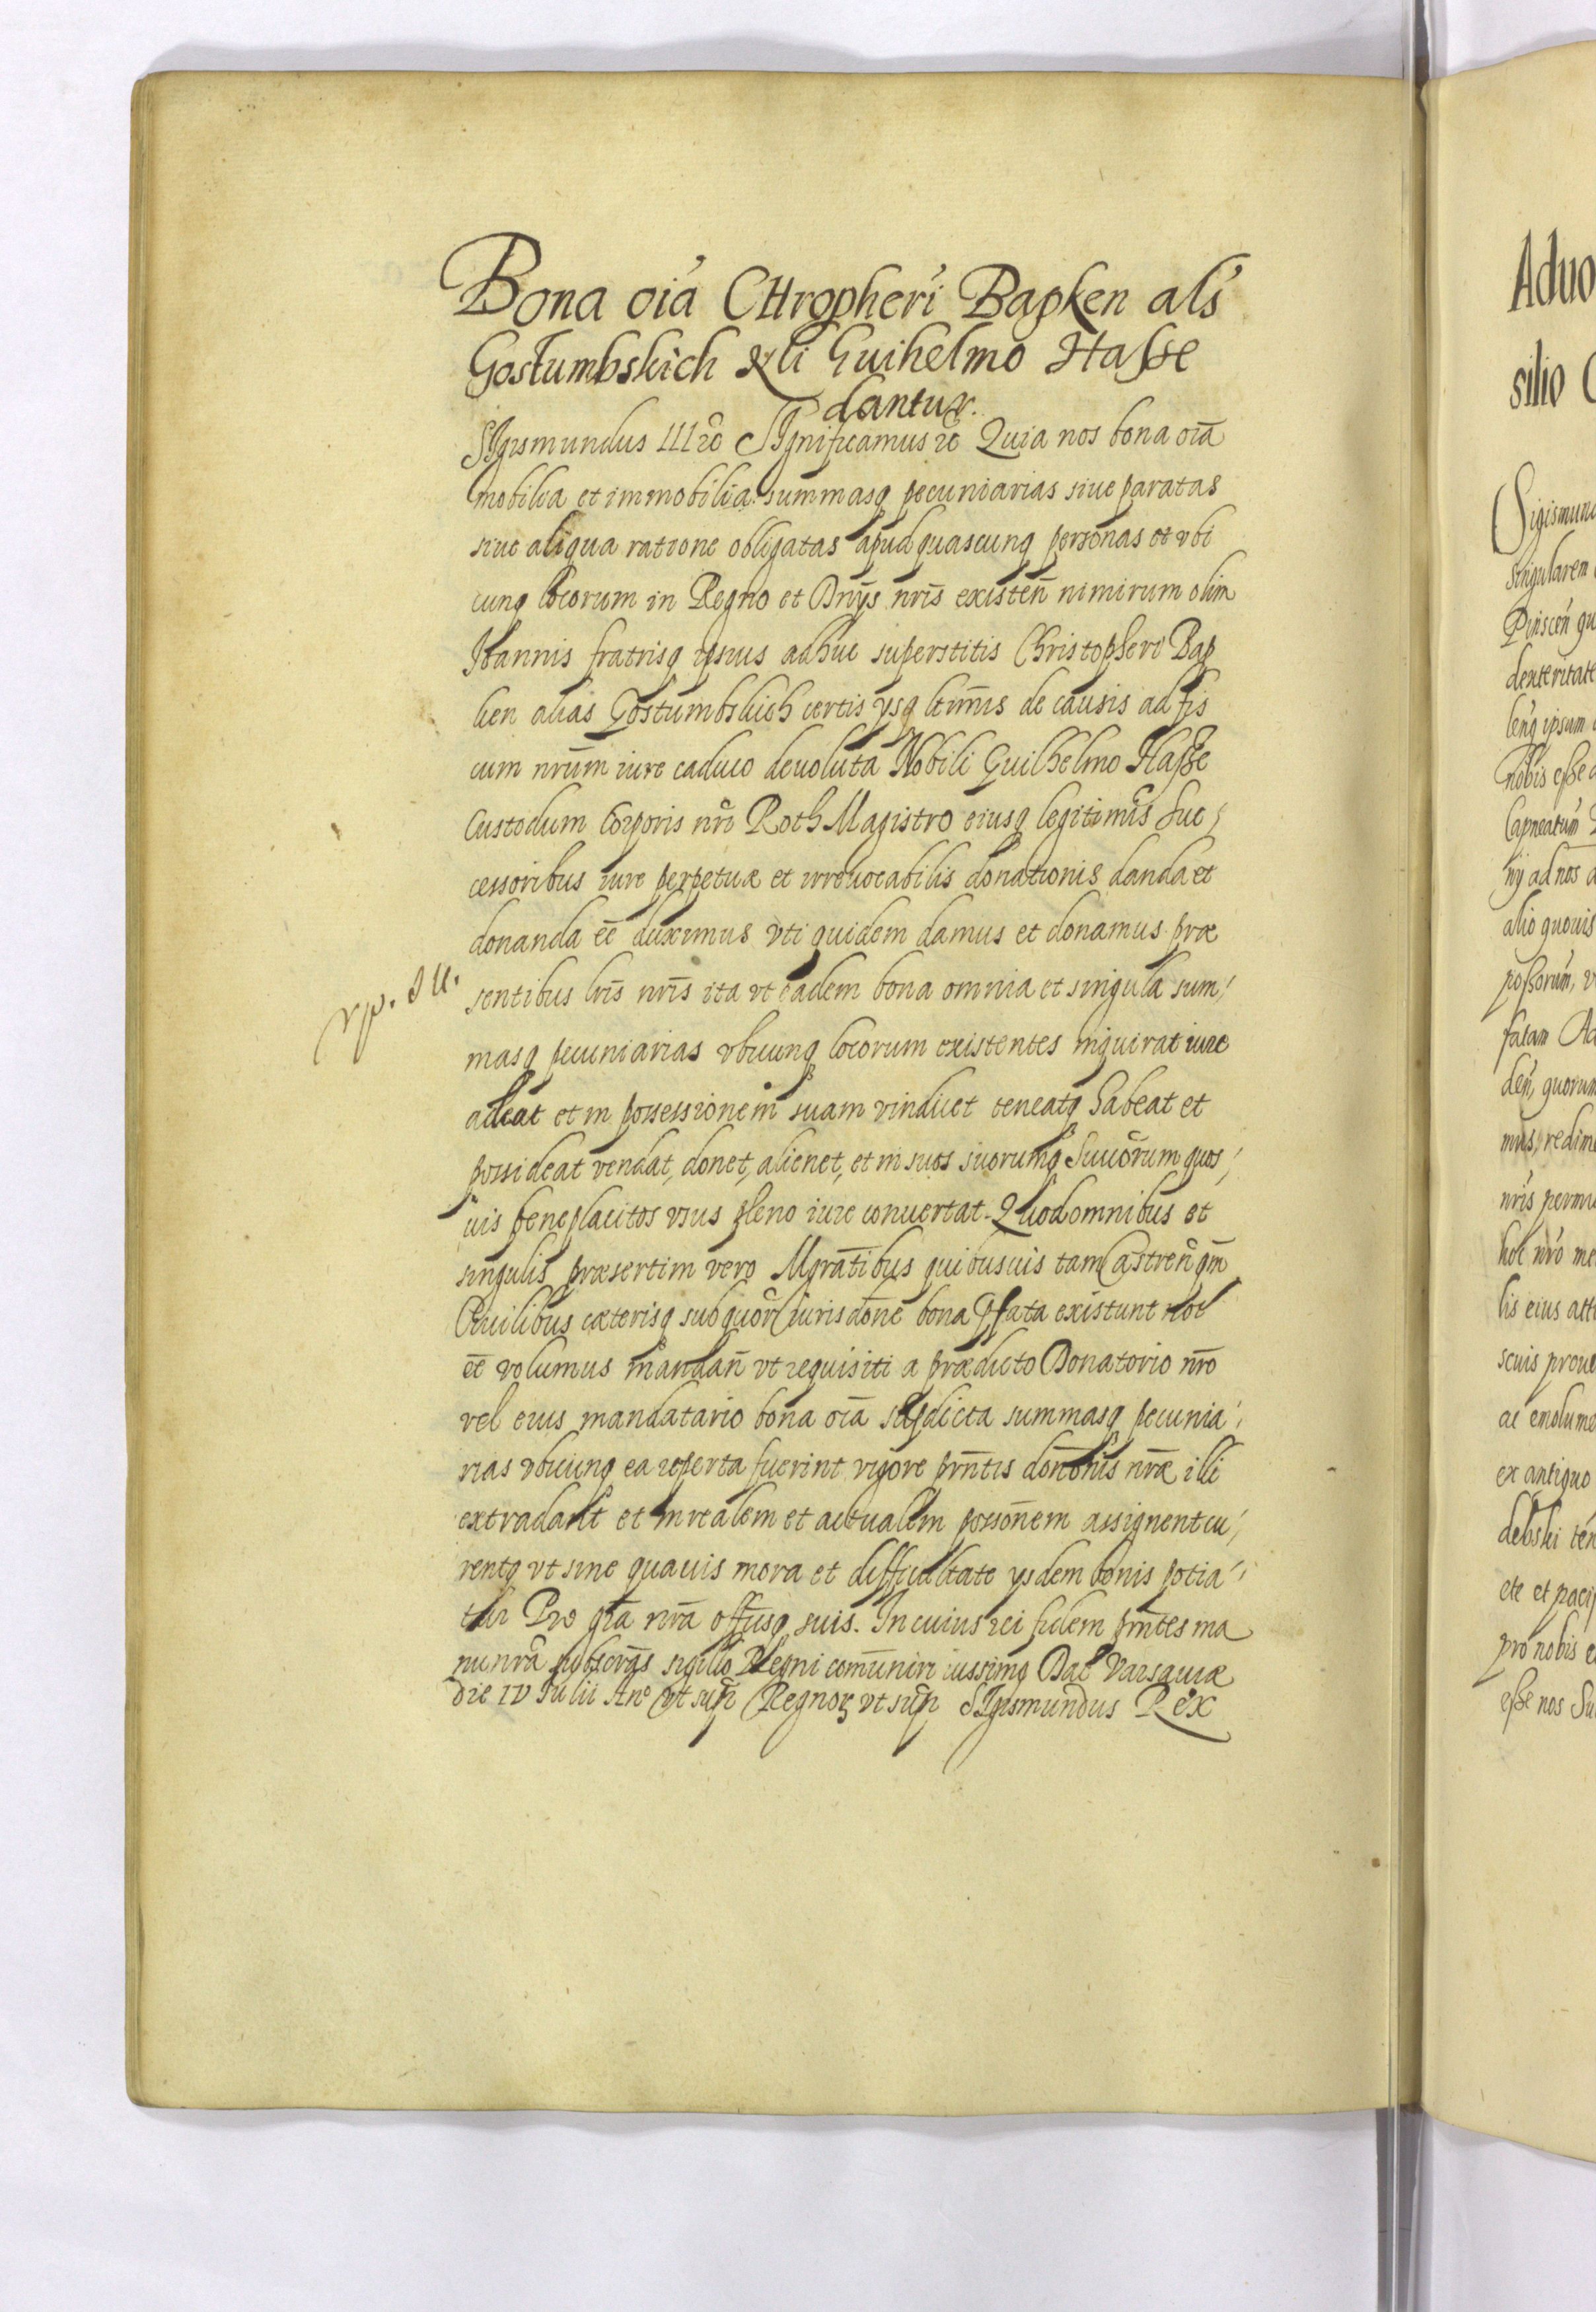 Bona oīa CHropheri Bapken als
Gostumbskich Nli Guihelmo Hasse
dantur.
SIgismundus III etc̃ SIgnificamus etc̃ Quia nos bona oīa
mobilia et immobilia summasq pecuniarias siue paratas
siue aliqua ratione obligatas apud quascunq personas et vbi
cunq locorum in Regno et Dnÿs nrīs existeñ nimirum olim
Ioannis fratrisq ipsius adhuc superstitis Christopheri Bap
ken alias Gostumbskich certis ÿsq ltīmis de causis ad fis
cum nrūm iure caduco deuoluta Nobili Guilhelmo Hasse
Custodum Corporis nrī Roth Magistro eiusq legitimis Suc,
cessoribus iure perpetuæ et irreuocabilis donationis danda et
donanda eē duximus vti quidem damus et donamus præ
sentibus lrīs nrīs ita vt eadem bona omnia et singula sum,
masq pecuniarias vbicunq locorum existentes inquirat iure
adeat et in possessionem suam vindicet teneatq habeat et
possideat vendat, donet, alienet, et in suos suorumq Succōrum quos,
uis beneplacitos vsus pleno iure conuertat. Quod omnibus et
singulis præsertim vero Mgratībus quibusuis tam Castreñ qm̄
Ciuilibus cæterisq sub quōr iurisdōne bona pfata existunt not
eē volumus mandañ vt requisiti a prædicto Donatorio nrō
vel eius mandatario bona oīa supdicta summasq pecunia,
rias vbicunq ea reperta fuerint vigore prn̄tis donōnis nræ illi
extradant et in realem et actualem possōnem assignent cu,
rentq vt sine quauis mora et difficultate ÿsdem bonis potia,
tur Pro grā nrā offīsq suis. In cuius rei fidem prn̄tes ma
nu nrā subscrās sigillo Regni comūniri iussimq Dat Varsauiæ
die IV Iulii Anº vt sup̄ Regnoꝝ vt sup̄ SIgismundus Rex
Aduo
silio
Sigismun
singularem
Pinscen qu
dexteritate
lenq ipsum
nobis esse
Capneatum
hÿ ad nos
alio quouis
den, quorum
mus, redim
nris permi
hoc nrō me
lis eius att
scuis proue
ac emolume
ex antiquo
debski ten
ete et paci
pro nobis e
esse nos Su